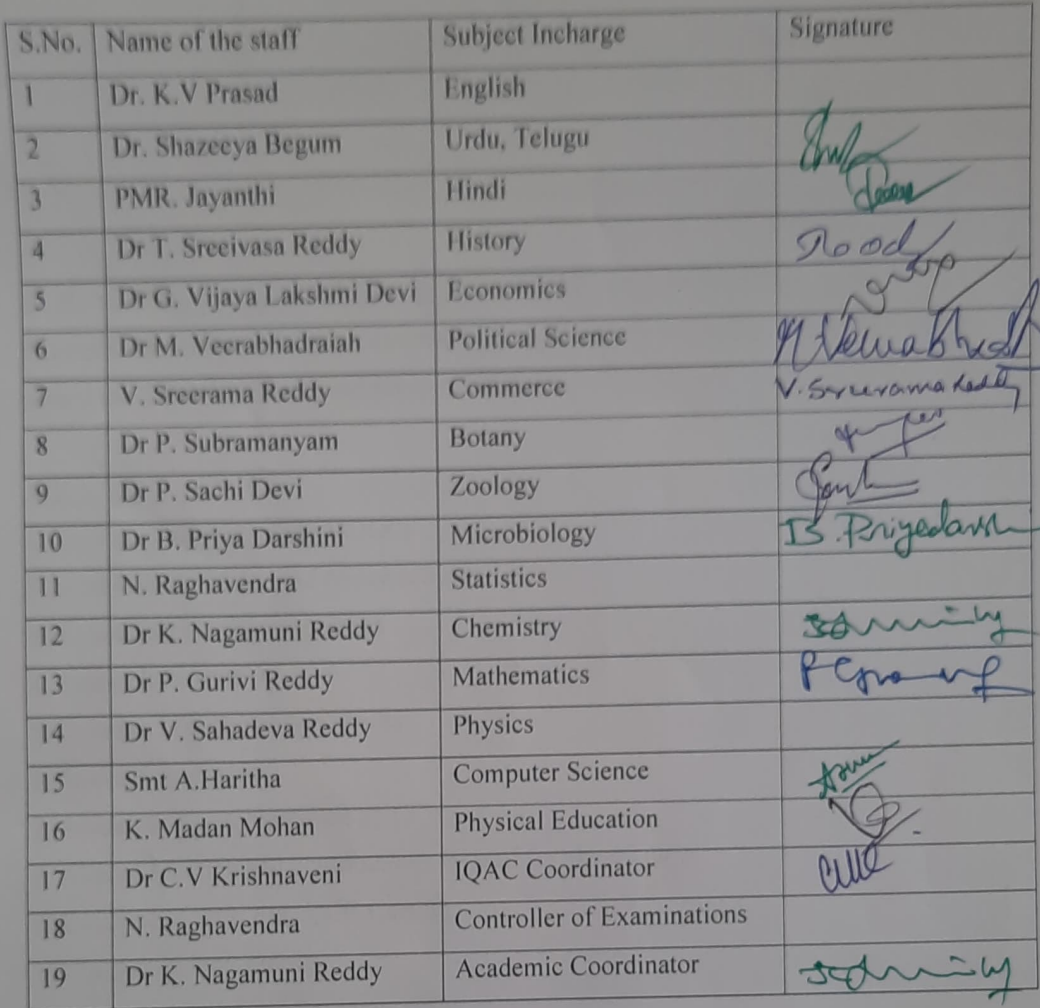 S.No. Name of the staff Subject Incharge Signature
1 Dr. K.V Prasad English
2 Dr. Shazeeya Begum Urdu, Telugu
3 PMR. Jayanthi Hindi
4 Dr T. Sreeivasa Reddy History
5 Dr G. Vijaya Lakshmi Devi Economics
6 Dr M. Veerabhadraiah Political Science
7 V. Sreerama Reddy Commerce V. Sreerama Reddy
8 Dr P. Subramanyam Botany
9 Dr P. Sachi Devi Zoology
10 Dr B. Priya Darshini Microbiology B. Priyedarsh
11 N. Raghavendra Statistics
12 Dr K. Nagamuni Reddy Chemistry
13 Dr P. Gurivi Reddy Mathematics
14 Dr V. Sahadeva Reddy Physics
15 Smt A.Haritha Computer Science
16 K. Madan Mohan Physical Education
17 Dr C.V Krishnaveni IQAC Coordinator
18 N. Raghavendra Controller of Examinations
19 Dr K. Nagamuni Reddy Academic Coordinator